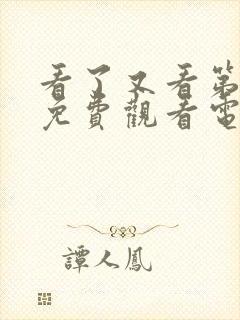 看了又看第
免費觀看電
譚人鳳